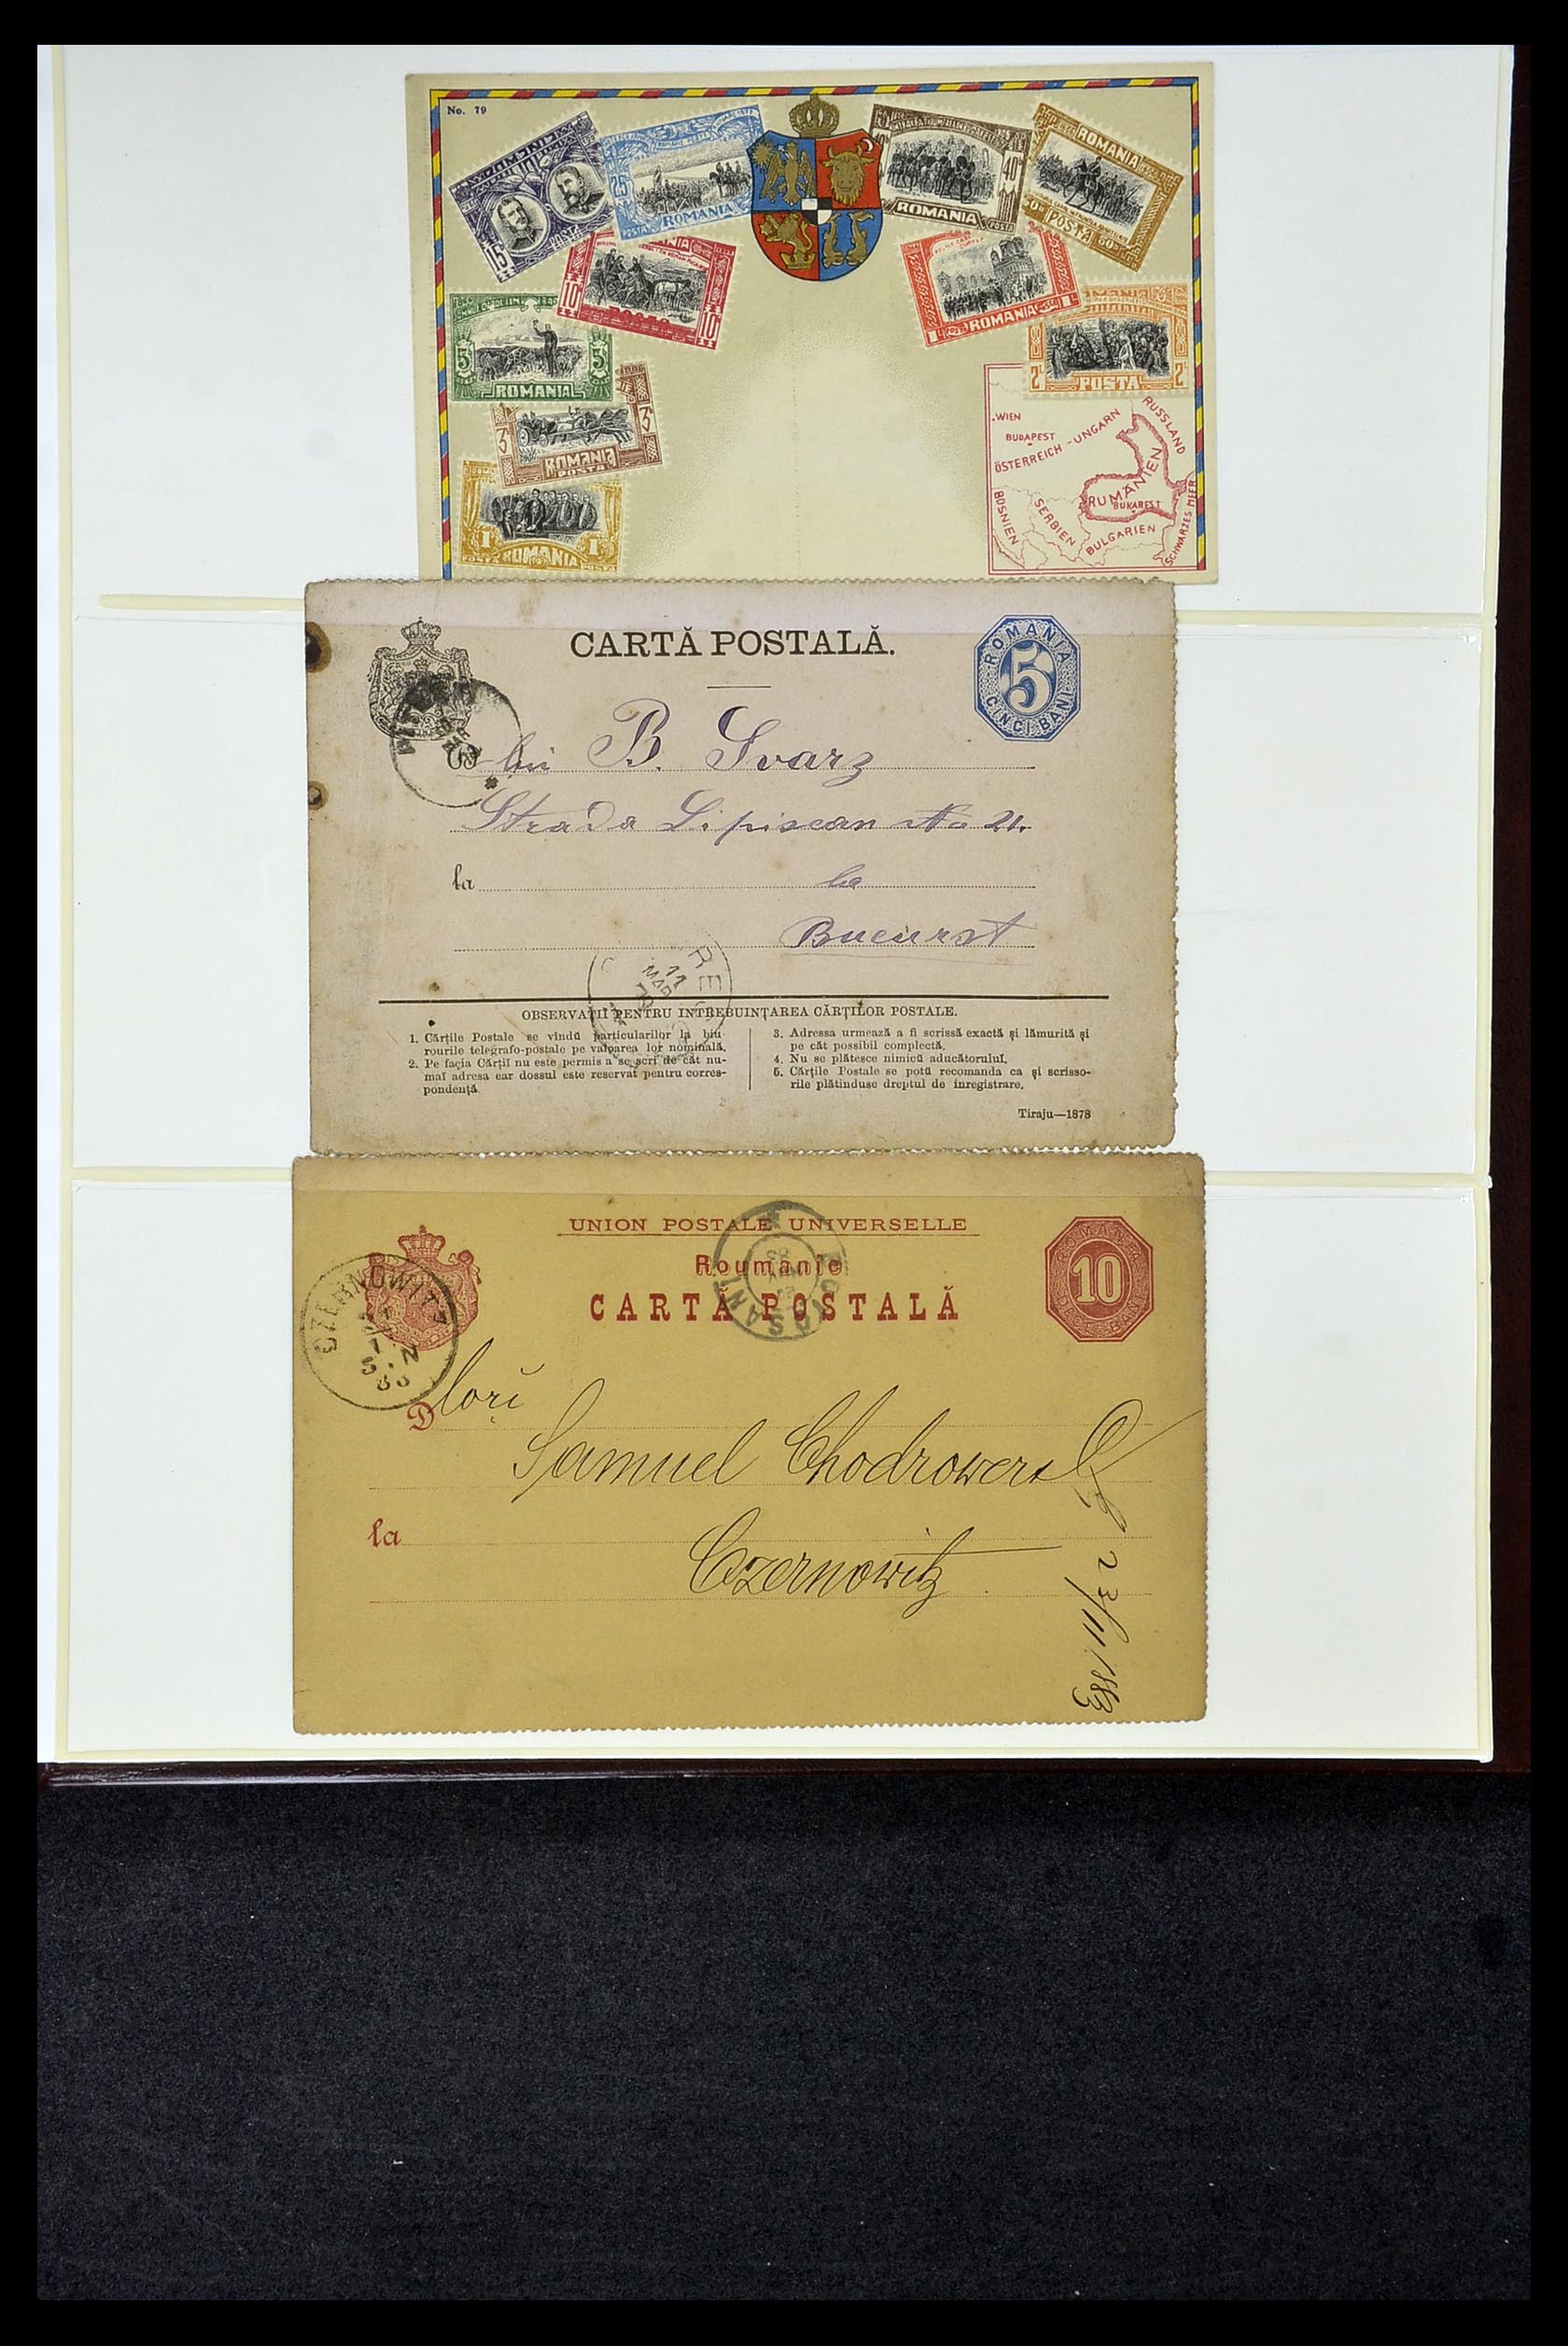 No. 79
15 POSTA
25 POSTA ROMANIA
40 ROMANIA POSTA
ROMANIA
POSTA 50
10 10
1 ROMANIA 1
5 ROMANIA 5
2 POSTA 2
3 ROMANIA 3
POSTA
1 ROMANIA 1
POSTA POSTA
WIEN
BUDAPEST
ÖSTERREICH-UNGARN
RUSSLAND
BOSNIEN
SERBIEN
RUMÄNIEN
BUKAREST
BULGARIEN
SCHWARZES MEER
CARTĂ POSTALĂ.
ROMANIA
5
CINCI BANI
lui B. Svarz
Strada Lipiscan No 21.
la la
Bucurest
11 MAR
OBSERVAȚII PENTRU INTREBUINȚAREA CĂRȚILOR POSTALE.
1. Cărțile Postale se vîndŭ particularilor la biu-
rourile telegrafo-postale pe valoarea lor nominală.
2. Pe facia Cărțiĭ nu este permis a se scri de cât nu-
maĭ adresa ear dossul este reservat pentru corres-
pondență
3. Adressa urmează a fi scrissă exactă și lămurită și
pe cât possibil complectă.
4. Nu se plătesce nimicŭ aducătoruluĭ.
5. Cărțile Postale se potŭ recomanda ca și scrisso-
rile plătinduse dreptul de inregistrare.
Tiraju—1878
UNION POSTALE UNIVERSELLE
Roumanie
CARTĂ POSTALĂ
10
CZERNOWITZ
BOTOSANI
Dlori
Samuel Chodrower
la
Czernowitz
23/11 1883